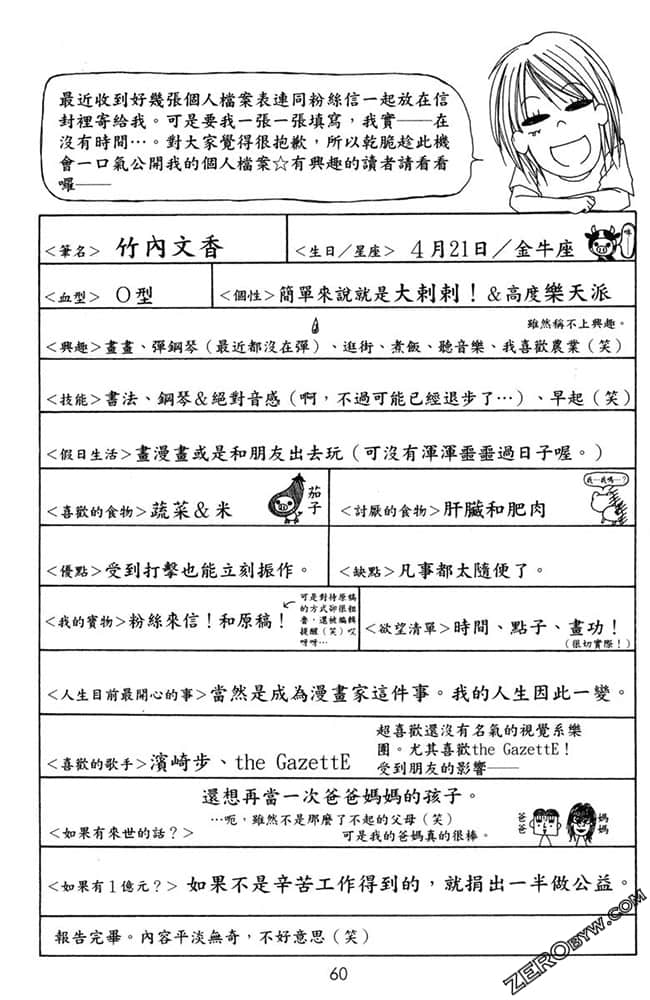 最近收到好幾張個人檔案表連同粉絲信一起放在信
封裡寄給我。可是要我一張一張填寫，我實——在
沒有時間…。對大家覺得很抱歉，所以乾脆趁此機
會一口氣公開我的個人檔案☆有興趣的讀者請看看
囉——
<筆名> 竹內文香
<生日／星座> 4月21日／金牛座
哞
<血型> O型
<個性>簡單來說就是大剌剌！＆高度樂天派
雖然稱不上興趣。
<興趣>畫畫、彈鋼琴（最近都沒在彈）、逛街、煮飯、聽音樂、我喜歡農業（笑）
<技能>書法、鋼琴＆絕對音感（啊，不過可能已經退步了…）、早起（笑）
<假日生活>畫漫畫或是和朋友出去玩（可沒有渾渾噩噩過日子喔。）
<喜歡的食物>蔬菜＆米
茄子
<討厭的食物>肝臟和肥肉
我…我嗎…？
<優點>受到打擊也能立刻振作。
<缺點>凡事都太隨便了。
<我的寶物>粉絲來信！和原稿！
可是對待原稿
的方式卻很粗
魯，還被編輯
提醒（笑）哎
呀呀…
<欲望清單>時間、點子、畫功！
（很切實際！）
<人生目前最開心的事>當然是成為漫畫家這件事。我的人生因此一變。
<喜歡的歌手>濱崎步、the GazettE
超喜歡還沒有名氣的視覺系樂
團。尤其喜歡the GazettE！
受到朋友的影響——
還想再當一次爸爸媽媽的孩子。
<如果有來世的話？>
…呃，雖然不是那麼了不起的父母（笑）
可是我的爸媽真的很棒。
爸爸
媽媽
<如果有1億元？>如果不是辛苦工作得到的，就捐出一半做公益。
報告完畢。內容平淡無奇，不好意思（笑）
60
ZEROBYW.COM